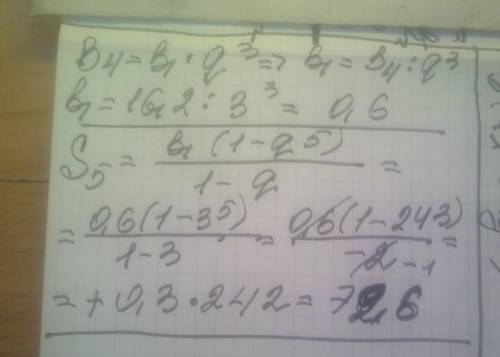 b₄ = b₁ · q³ => b₁ = b₄ : q³
b₁ = 16,2 : 3³ = 0,6
S₅ = b₁(1-q⁵) / 1-q =
= 0,6(1-3⁵) / 1-3 = 0,6(1-243) / -2 -1 =
= +0,3 · 242 = 72,6